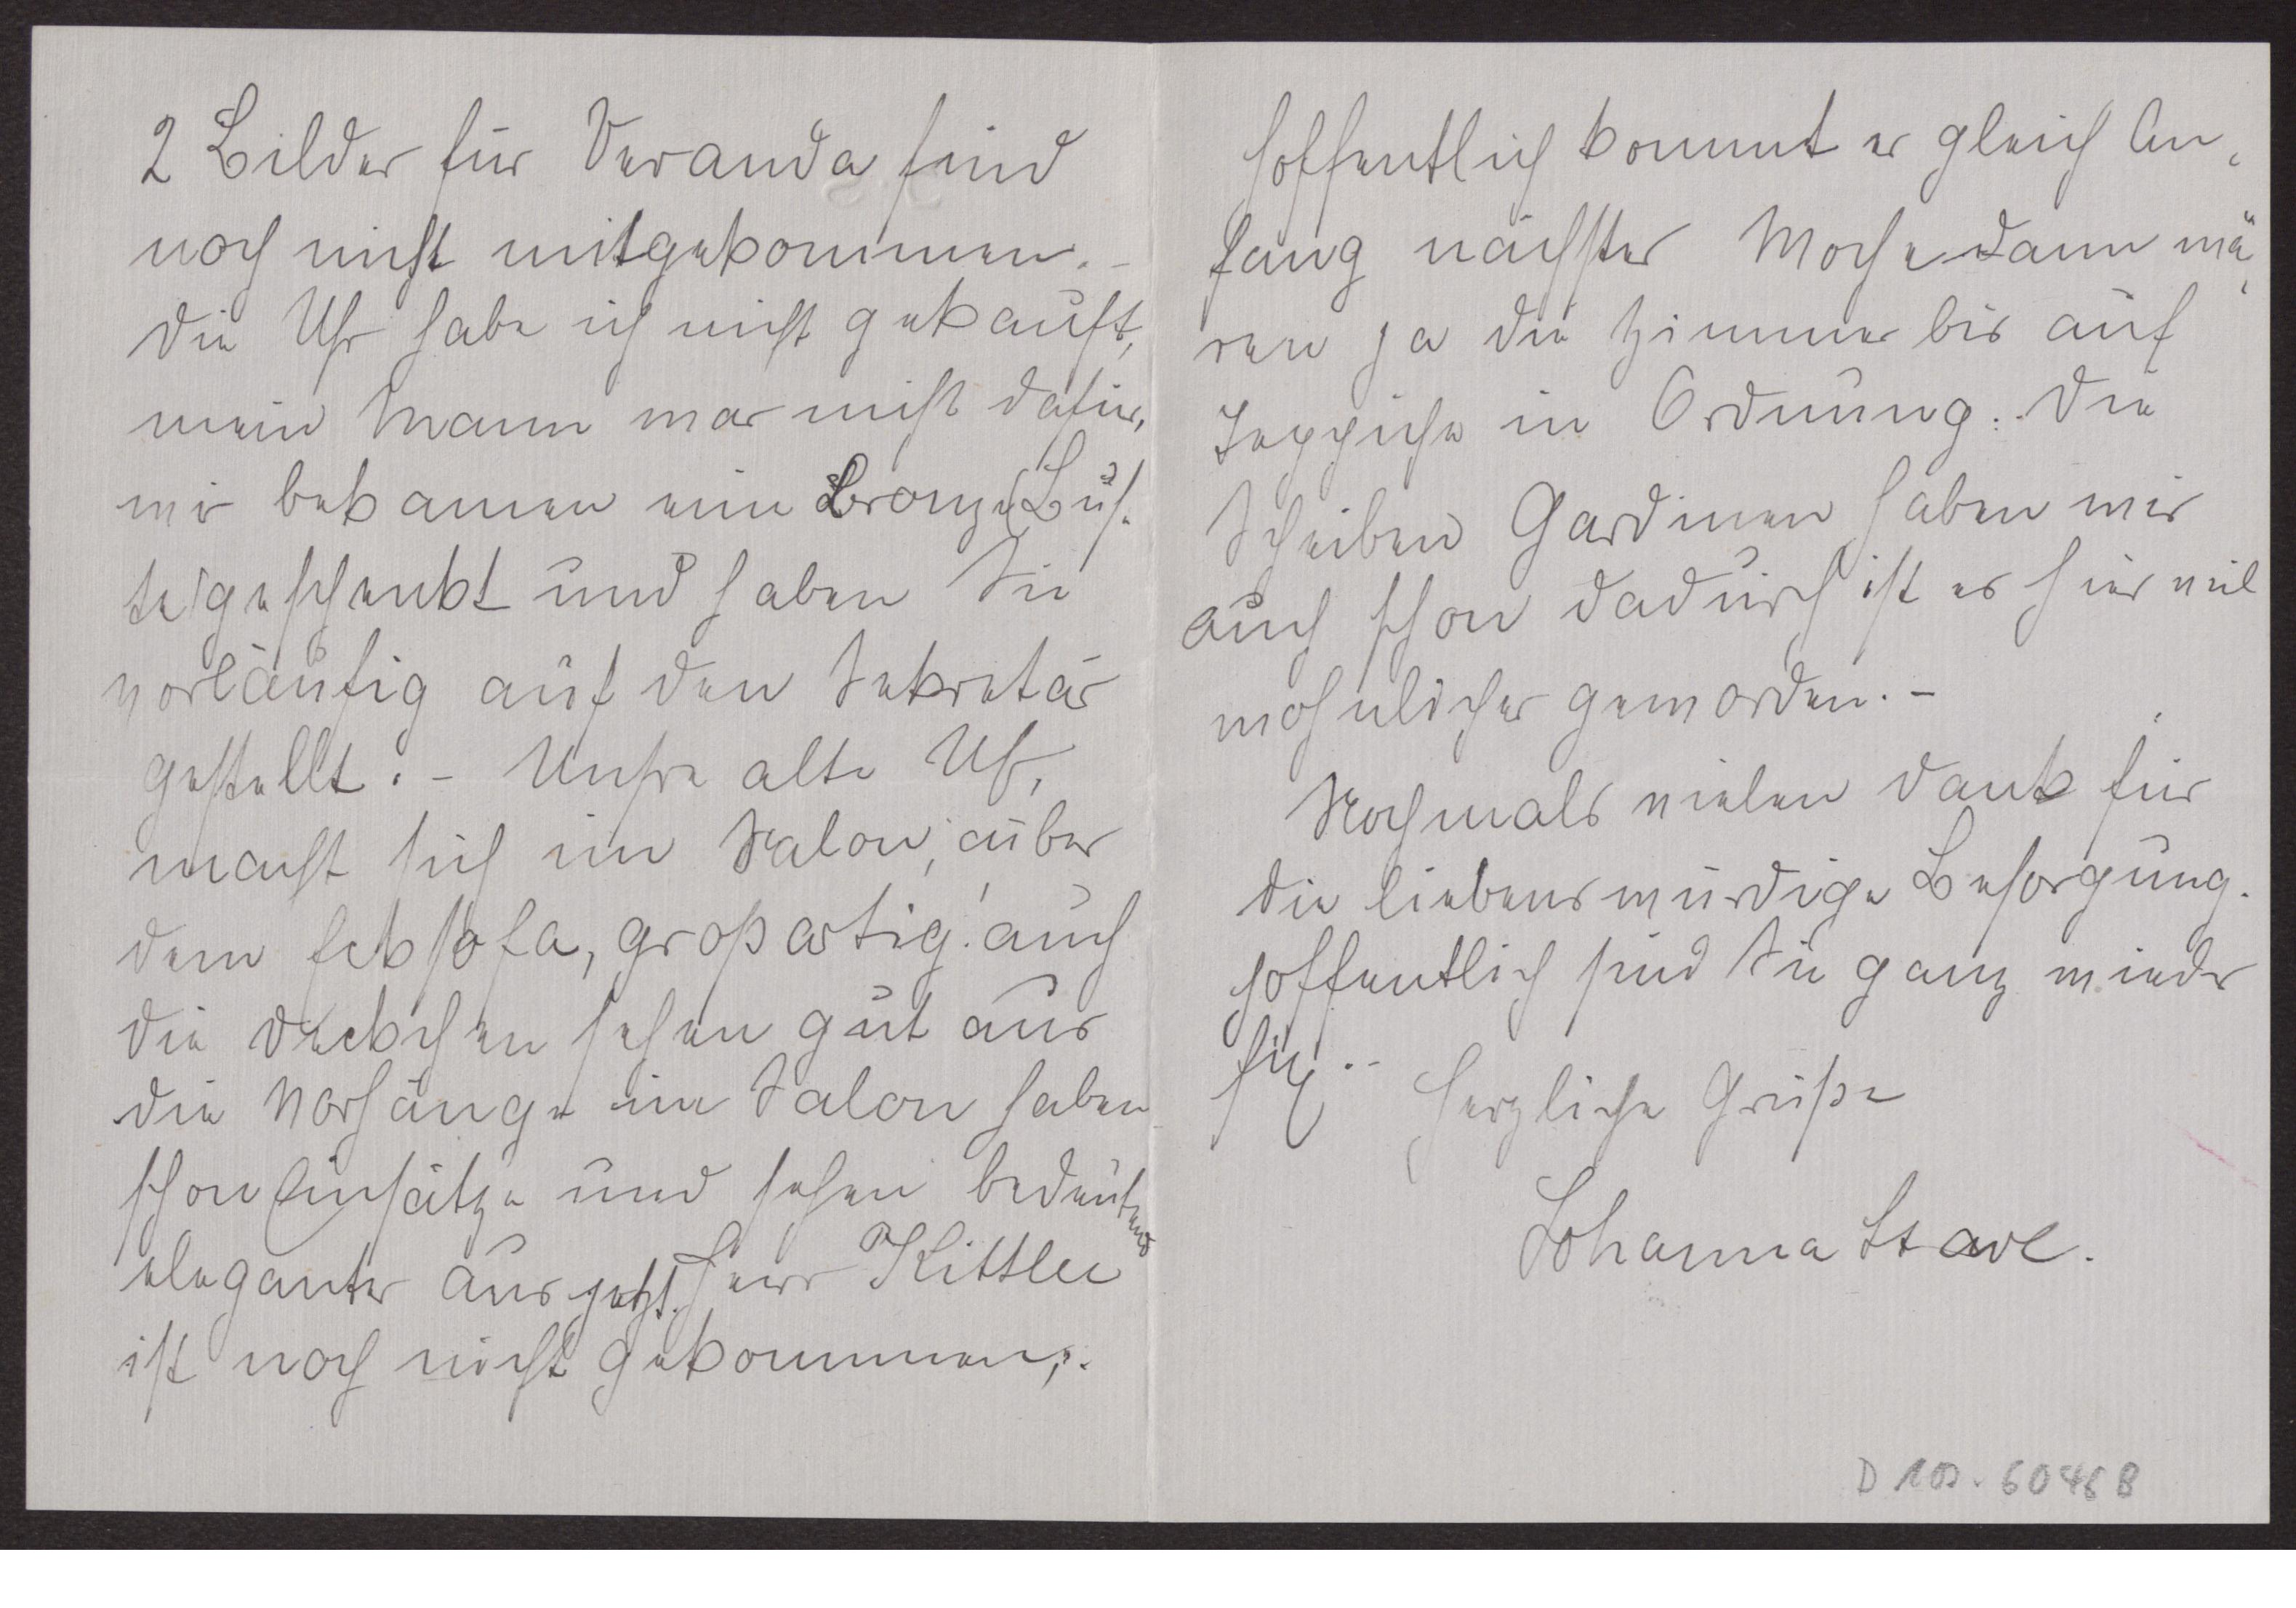 2 Bilder für Veranda sind
noch nicht mitgekommen. -
die Uhr habe ich nicht gekauft,
mein Mann war nicht dafür,
wir bekamen eine Bronze (Büs-
te) geschenkt und haben Sie
vorläufig auf den Sekretär
gestellt. - Unsre alte Uhr,
macht sich im Salon, über
dem Ecksofa, großartig! auch
die Deckchen sehen gut aus
die Vorhänge im Salon haben
schon Einsätze und sehen bedeutend
eleganter aus jetzt. Herr Kittler
ist noch nicht gekommen,.
hoffentlich kommt er gleich An-
fang nächster Woche dann wä-
ren ja die Zimmer bis auf
Teppiche in Ordnung. Die
Scheiben Gardinen haben wir
auch schon dadurch ist es hier viel
wohnlicher geworden. -
Nochmals vielen Dank für
die liebenswürdige Besorgung.
hoffentlich sind Sie ganz wieder
herzliche Grüße
Johanna Stave.
D 100. 6046 B